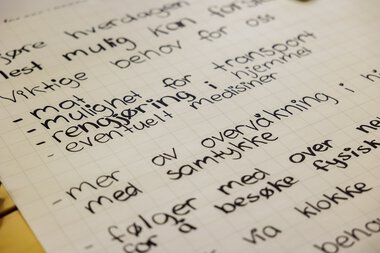 jøre hverdagen
lest mulig kan
Viktige behov for oss
- mat
- mulighet for transport
- rengjøring i hjemmet
- eventuelt medisiner
- mer av overvåkning i
med samtykke
- følger med over
for å besøke fysisk
via klokke